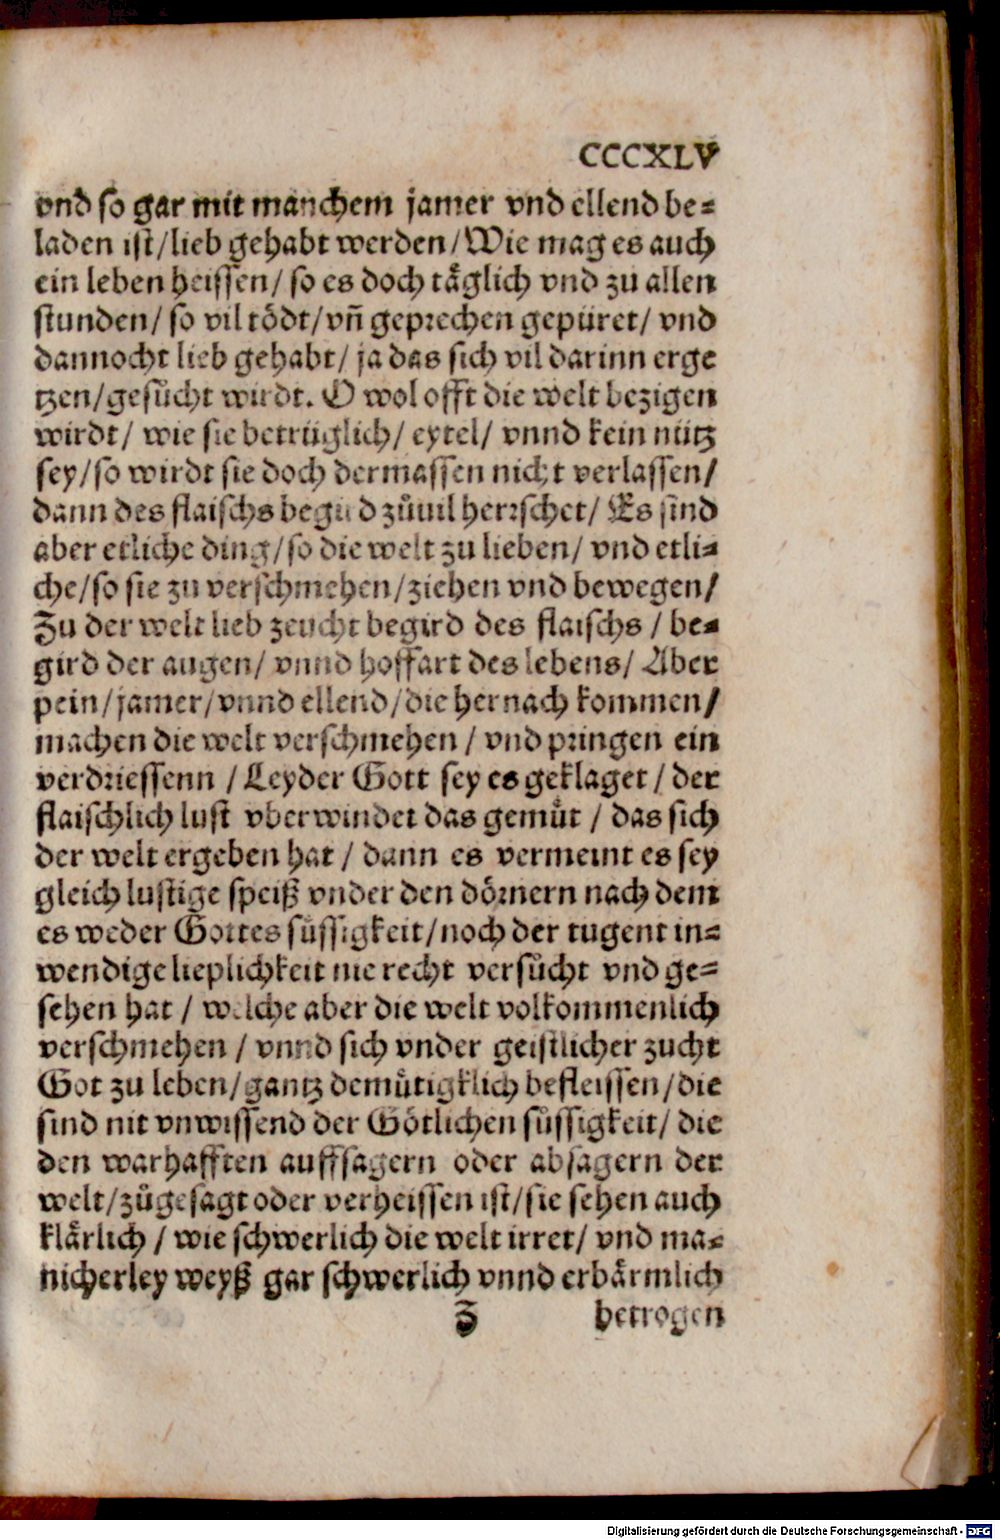 CCCXLV
vnd so gar mit manchem jamer vnd ellend be-
laden ist/lieb gehabt werden/Wie mag es auch
ein leben heissen/ so es doch täglich vnd zu allen
stunden/ so vil tödt/vñ geprechen gepüret/ vnd
dannocht lieb gehabt/ ja das sich vil darinn erge
tzen/gesůcht wirdt. O wol offt die welt bezigen
wirdt/ wie sie betrüglich/ eytel/ vnnd kein nütz
sey/so wirdt sie doch dermassen nicht verlassen/
dann des flaischs begird zůuil herrschet/ Es sind
aber etliche ding/so die welt zu lieben/ vnd etli-
che/so sie zu verschmehen/ziehen vnd bewegen/
Zu der welt lieb zeucht begird des flaischs / be-
gird der augen/ vnnd hoffart des lebens/ Aber
pein/jamer/vnnd ellend/die hernach kommen/
machen die welt verschmehen / vnd pringen ein
verdriessenn / Leyder Gott sey es geklaget / der
flaischlich lust vberwindet das gemůt / das sich
der welt ergeben hat / dann es vermeint es sey
gleich lustige speiß vnder den dörnern nach dem
es weder Gottes süssigkeit/noch der tugent in-
wendige lieplichkeit nie recht versůcht vnd ge-
sehen hat / welche aber die welt volkommenlich
verschmehen / vnnd sich vnder geistlicher zucht
Got zu leben/gantz demůtigklich befleissen/die
sind nit vnwissend der Götlichen süssigkeit/ die
den warhafften auffsagern oder absagern der
welt/zůgesagt oder verheissen ist/sie sehen auch
klärlich / wie schwerlich die welt irret/ vnd ma-
nicherley weyß gar schwerlich vnnd erbärmlich
Z betrogen
Digitalisierung gefördert durch die Deutsche Forschungsgemeinschaft - DFG